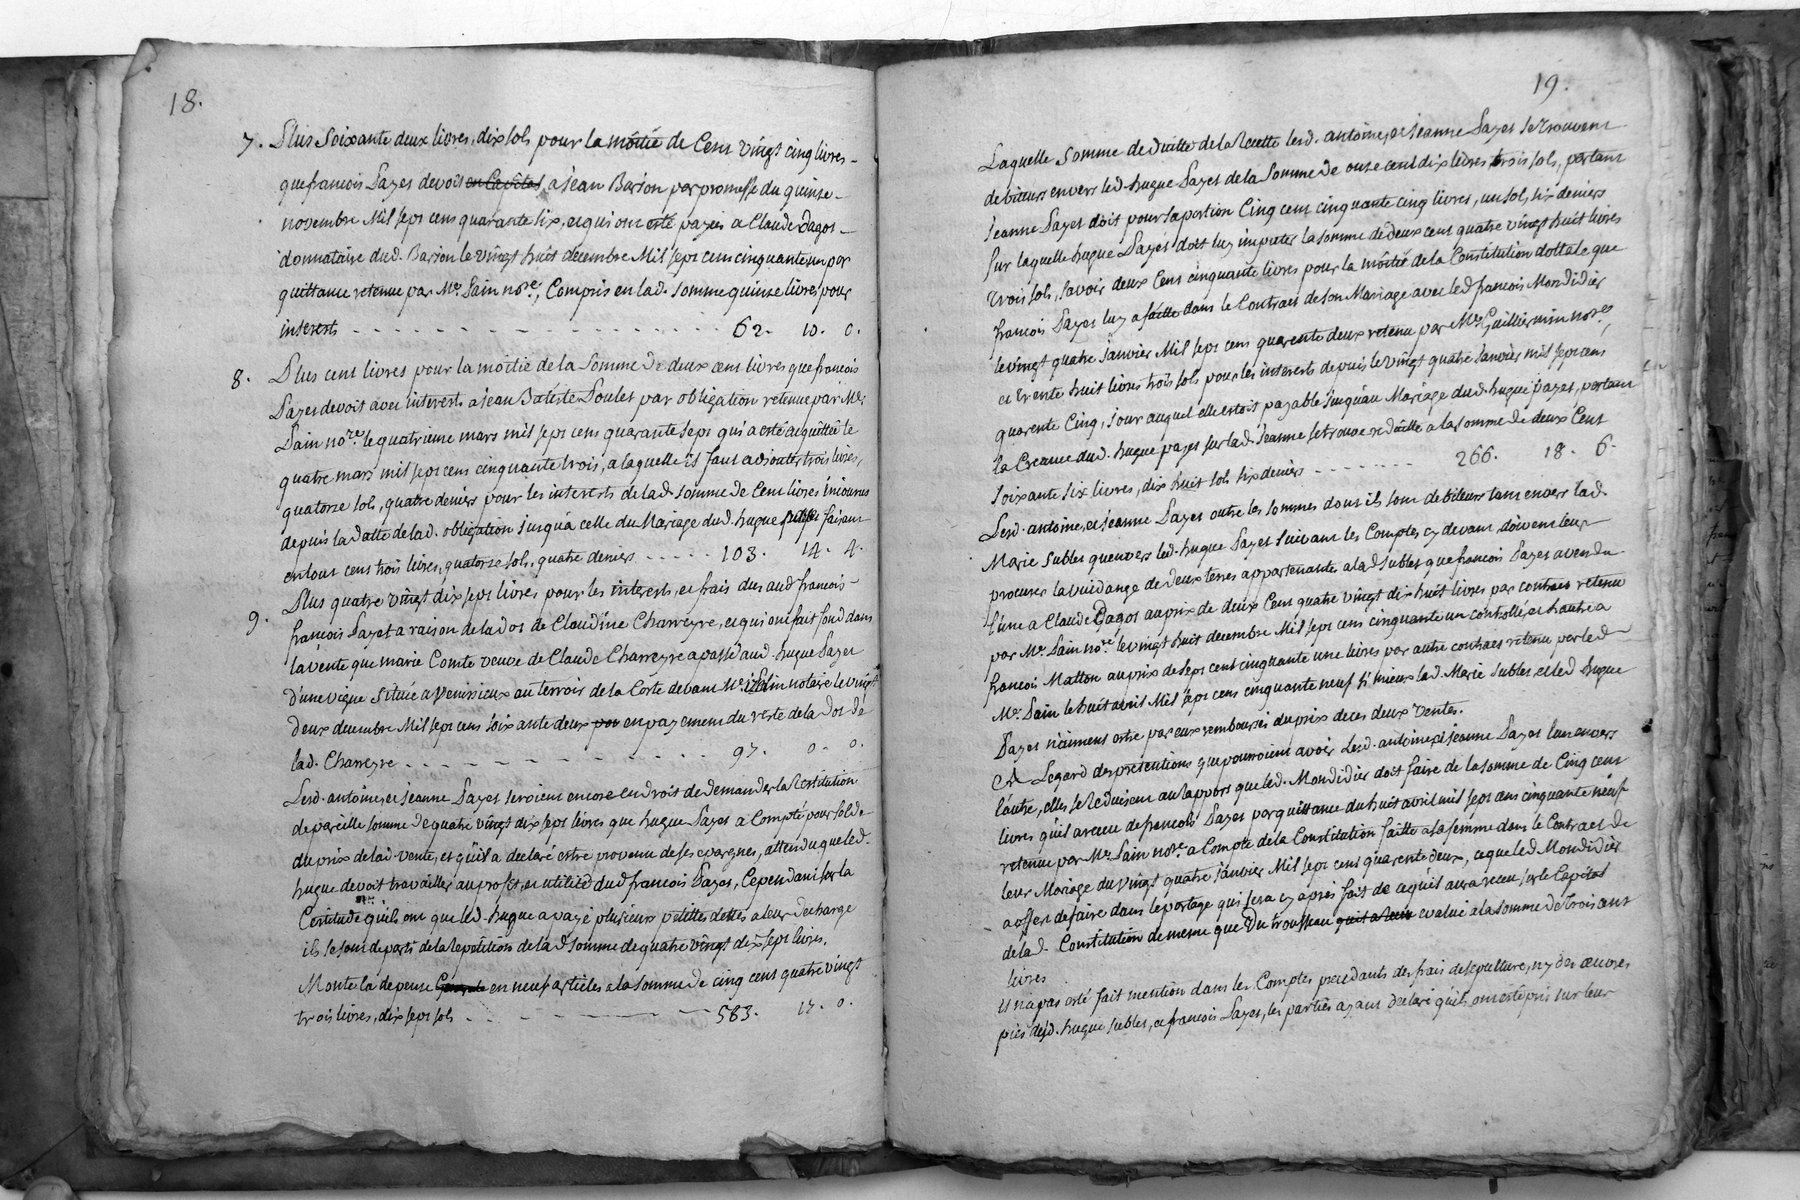 18.
7. Plus Soixante deux livres, dix sols pour la moitié de Cent vingt cinq livres
que francois Payet devoit en Capital a Jean Barion par promesse du quinze
novembre Mil sept cens quarante six, et qui ont esté payés a Claude Dagot
donnataire dud. Barion le vingt huit décembre Mil sept cens cinquante un par
quittance retenue par Me. Sain nore., Compris en lad. somme quinze livres pour
interests 62. 10. 0.
8. Plus cent livres pour la moitié de la Somme de deux cent livres que francois
Payet devoit avec interests a Jean Batiste Poulet par obligation retenue par Me.
Sain nore. le quatrieme mars mil sept cens quarante sept qui a esté acquittée le
quatre mars mil sept cens cinquante trois, a laquelle il faut adjouter trois livres,
quatorze sols, quatre deniers pour les interests de lad. somme de Cent livres encourus
depuis la datte de lad. obligation jusqu'a celle du Mariage dud. hugue faisant
entout cent trois livres, quatorze sols, quatre deniers 103. 14. 4.
9. Plus quatre vingt dix sept livres pour les interests, et frais dus aud francois
francois Payet a raison de la dot de Claudine Charreyre, et qui ont fait fond dans
la vente que marie Comte veuve de Claude Charreyre a passé aud. hugue Payet
d'une vigne située a Venissieux au terroir de la Côte devant Me. Sain notaire le vingt
deux decembre Mil sept cens soixante deux par en payement du reste de la dot de
lad. Charreyre 97. 0. 0.
Lesd. antoine, et jeanne Payet seroient encore en droit de demander la Restitution
de pareille somme de quatre vingt dix sept livres que hugue Payet a Compté pour solde
du prix de lad. vente, et qu'il a declaré estre provenu de ses epargnes, attendu que led.
hugue devoit travailler au profit, et utilité dud francois Payet, Cependant sur la
Certitude qu'ils ont que led. hugue a payé plusieurs petittes dettes a leur decharge
ils se sont departis de la Repetition de la d somme de quatre vingt dix sept livres.
Monte la depense en neuf articles a la somme de cinq cent quatre vingt
trois livres, dix sept sols 583. 17. 0.
19.
Laquelle Somme deduitte de la Recette lesd. antoine, et jeanne Payet se trouvent
debiteurs envers led. hugue Payet de la Somme de onze cent dix livres trois sols, partant
Jeanne Payet doit pour sa portion Cinq cent cinquante cinq livres, un sol, six deniers
Sur laquelle hugue Payet doit luy imputer la somme de deux cent quatre vingt huit livres
trois sols, savoir deux Cent cinquante livres pour la moitié de la Constitution dottale que
francois Payet luy a faitte dans le Contract de son Mariage avec led francois Mondidier
le vingt quatre Janvier Mil sept cens quarente deux retenu par Me. Guilliermin nore.
et trente huit livres trois sols pour les interests depuis le vingt quatre Janvier mil sept cens
quarente Cinq, jour auquel elle estoit payable jusqu'au Mariage dud. hugue payet, partant
la Creance dud. hugue payet sur lad. Jeanne se trouve reduitte a la somme de deux Cent
Soixante six livres, dix huit sols six deniers 266. 18. 6.
Lesd. antoine, et jeanne Payet outre les sommes dont ils sont debiteurs tant envers lad.
Marie Sublet qu'envers led. hugue Payet suivant les Comptes cy devant, doivent leur
procurer la vuidange de deux terres appartenantes a lad Sublet que francois Payet a vendu
l'une a Claude Dagot au prix de deux Cent quatre vingt dix huit livres par contract retenu
par Me. Sain nore. le vingt huit decembre Mil sept cens cinquante un controllé, et l'autre a
francois Matton au prix de sept cent cinquante une livres par autre contract retenu par led
Me. Sain le huit avril Mil sept cens cinquante neuf si mieux lad. Marie Sublet et led hugue
Payet n'aiment estre par eux remboursés du prix de ces deux ventes.
a Legard des pretentions que pourroient avoir Lesd. antoine et jeanne Payet l'un envers
l'autre, elles se Reduisent au Rapport que led. Mondidier doit faire de la somme de Cinq cent
livres qu'il a receu de francois Payet par quittance du huit avril mil sept cens cinquante neuf
retenue par Me. Sain nore. a Compte de la Constitution faitte a sa femme dans le Contract de
leur Mariage du vingt quatre janvier Mil sept cens quarente deux, ce que led Mondidier
a offert de faire dans le partage qui sera cy apres fait de ce qu'il aura receu sur le Capital
de lad. Constitution de meme que du trousseau evalué a la somme de trois cent
livres
il n'a pas esté fait mention dans les Comptes precedants des frais de sepulture, ny des œuvres
pies desd. hugue Sublet, et francois Payet, les parties ayant declaré qu'ils ont esté pris sur leur